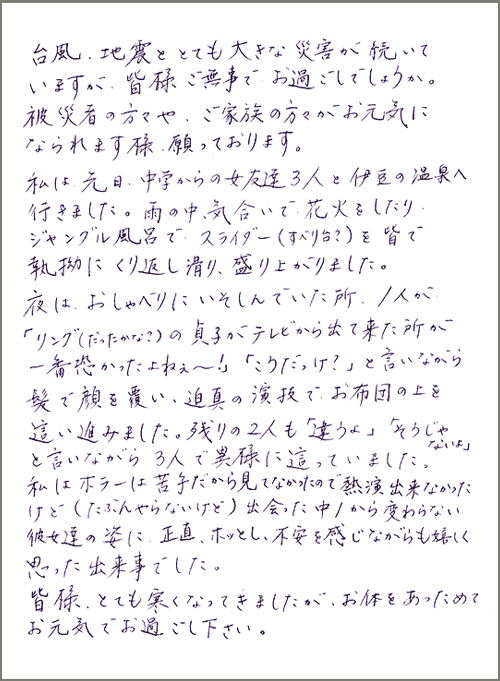 台風、地震ととても大きな災害が続いて
いますが、皆様ご無事でお過ごしでしょうか。
被災者の方々や、ご家族の方々がお元気に
なられます様、願っております。
私は、先日、中学からの女友達3人と伊豆の温泉へ
行きました。雨の中、気合いで花火をしたり、
ジャングル風呂で、スライダー(すべり台?)を皆で
執拗にくり返し滑り、盛り上がりました。
夜は、おしゃべりにいそしんでいた所、1人が
「リング(だったかな?)の貞子がテレビから出て来た所が
一番恐かったよねぇ〜!」「こうだっけ?」と言いながら
髪で顔を覆い、迫真の演技で、お布団の上を
這い進みました。残りの2人も「違うよ」「そうじゃ
ないよ」
と言いながら3人で異様に這っていました。
私はホラーは苦手だから見てなかったので熱演出来なかった
けど(たぶんやらないけど)出会った中1から変わらない
彼女達の姿に、正直、ホッとし、不安を感じながらも嬉しく
思った出来事でした。
皆様、とても寒くなってきましたが、お体をあっためて
お元気でお過ごし下さい。